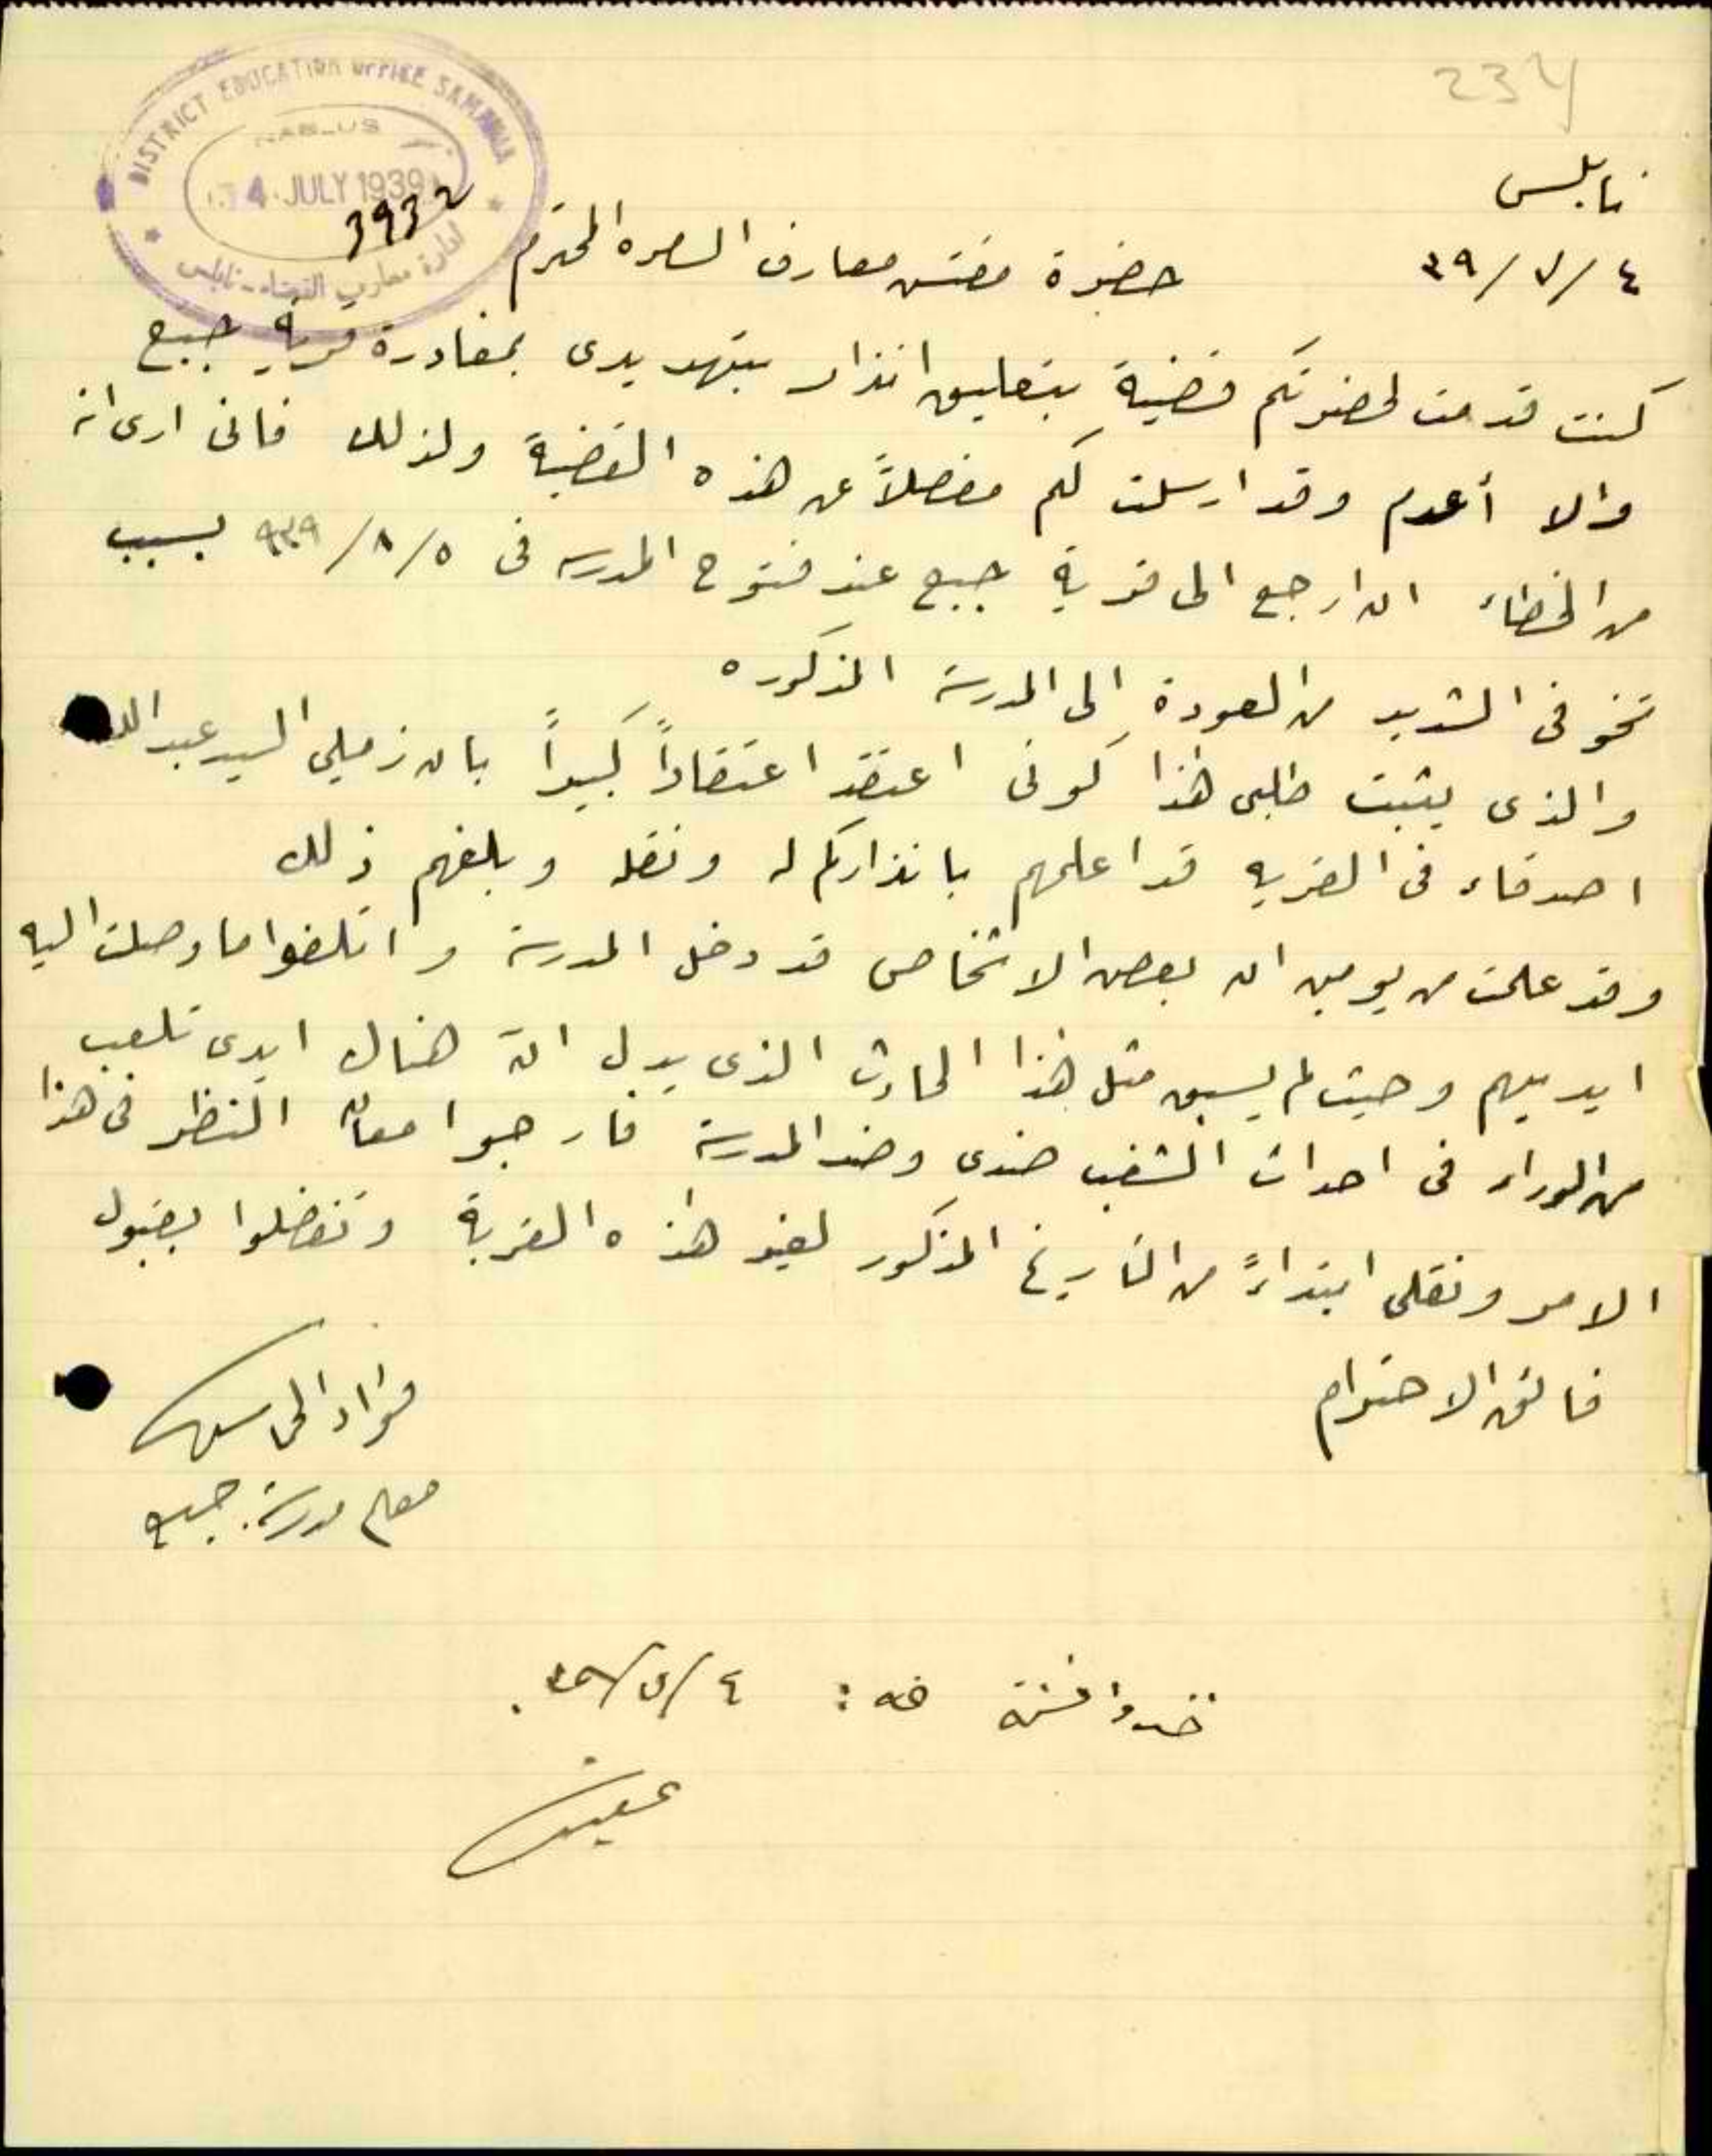 234
DISTRICT EDUCATION OFFICE SAMARIA
NABLUS
4 JULY 1939
3932
ادارة معارف القضاء - نابلس
نابلس
٤/٧/٣٩
حضرة مفتش معارف السامرة المحترم
كنت قدمت لحضرتكم قضية بتعليق انذار بتهديدى بمغادرة قرية جبع
والا أعدم وقد ارسلت لكم مفصلاً عن هذه القضية ولذلك فانى ارى انه
من الخطاء ان ارجع الى قرية جبع عند فتوح المدرسه فى ٥/٨/٩٣٩ بسبب
تخوفى الشديد من العودة إلى المدرسة المذكوره
والذى يثبت طلبى هذا كونى اعتقد اعتقاداً كبيراً بان زميلي السيد عبد الله
اصدقاء فى القريه قد اعلمهم بانذاركم له ونقله وبلغهم ذلك
وقد علمت من يومين ان بعض الاشخاص قد دخل المدرسة واتلفوا ما وصلت اليه
ايديهم وحيث لم يسبق مثل هذا الحادث الذى يدل انه هناك ايدى تلعب
من الوراء فى احداث الشغب ضدى وضد المدرسة فارجوا معان النظر فى هذا
الامر ونقلى ابتداءً من التاريخ المذكور لغير هذه القرية وتفضلوا بقبول
فائق الاحترام
فؤاد
معلم مدرسة جبع
٤/٧/٣٩